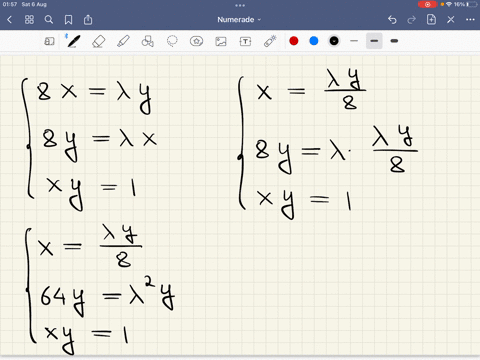 01:57 Sat 6 Aug
16%
Numerade
8x = λy
8y = λx
xy = 1
x = λy/8
8y = λ · λy/8
xy = 1
x = λy/8
64y = λ²y
xy = 1